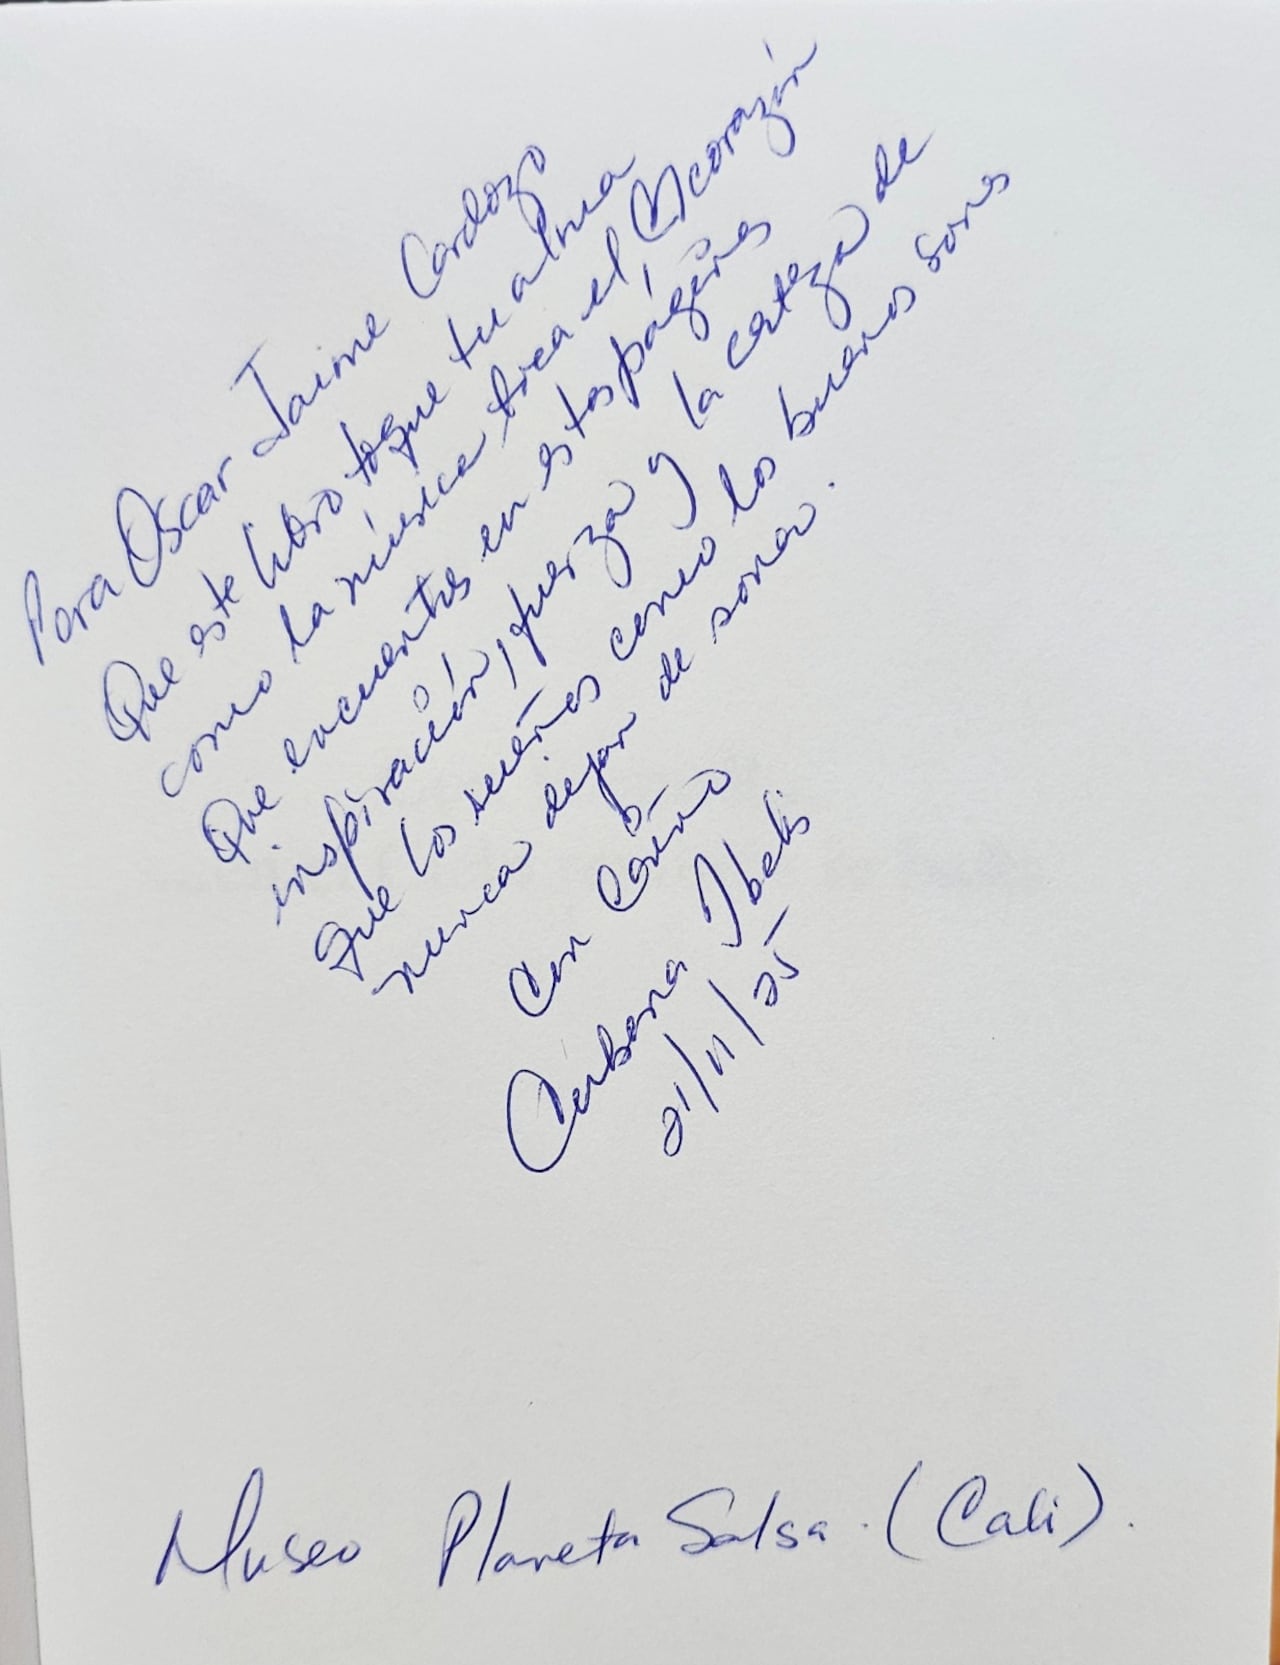 Para Oscar Jaime Cardozo
Que este libro toque tu alma
como la música toca el corazón
Que encuentres en estas páginas
inspiración, fuerza y la certeza de
que los sueños como los buenos sones
nunca dejan de sonar.
Con Cariño
Ibelis
21/11/25
Museo Planeta Salsa. (Cali).